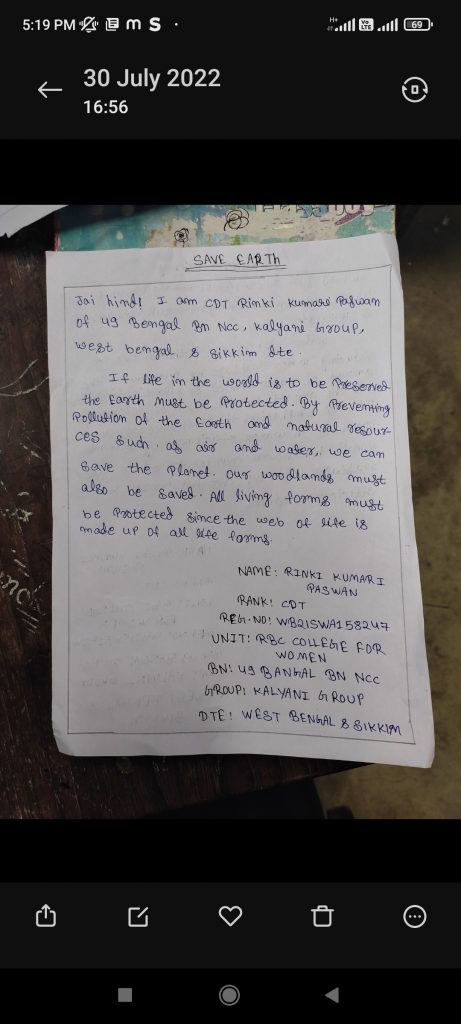 5:19 PM
H+
Vo
LTE
69
30 July 2022
16:56
SAVE EARTh
Jai hind! I am CDT Rinki kumari Paswan
of 49 Bengal Bn Ncc, kalyani GROUP,
west bengal & sikkim dte.
If life in the world is to be Preserved
the Earth Must be Protected. By Preventing
Pollution of the Earth and natural resour-
ces such as air and water, we can
save the Planet. our woodlands must
also be saved. All living forms must
be Protected since the web of life is
made up of all life forms.
NAME: RINKI KUMARI
PASWAN
RANK: CDT
REG.NO: WB21SWA158247
UNIT: RBC COLLEGE FOR
WOMEN
BN: 49 BANGAL BN NCC
GROUP: KALYANI GROUP
DTE: WEST BENGAL & SIKKIM